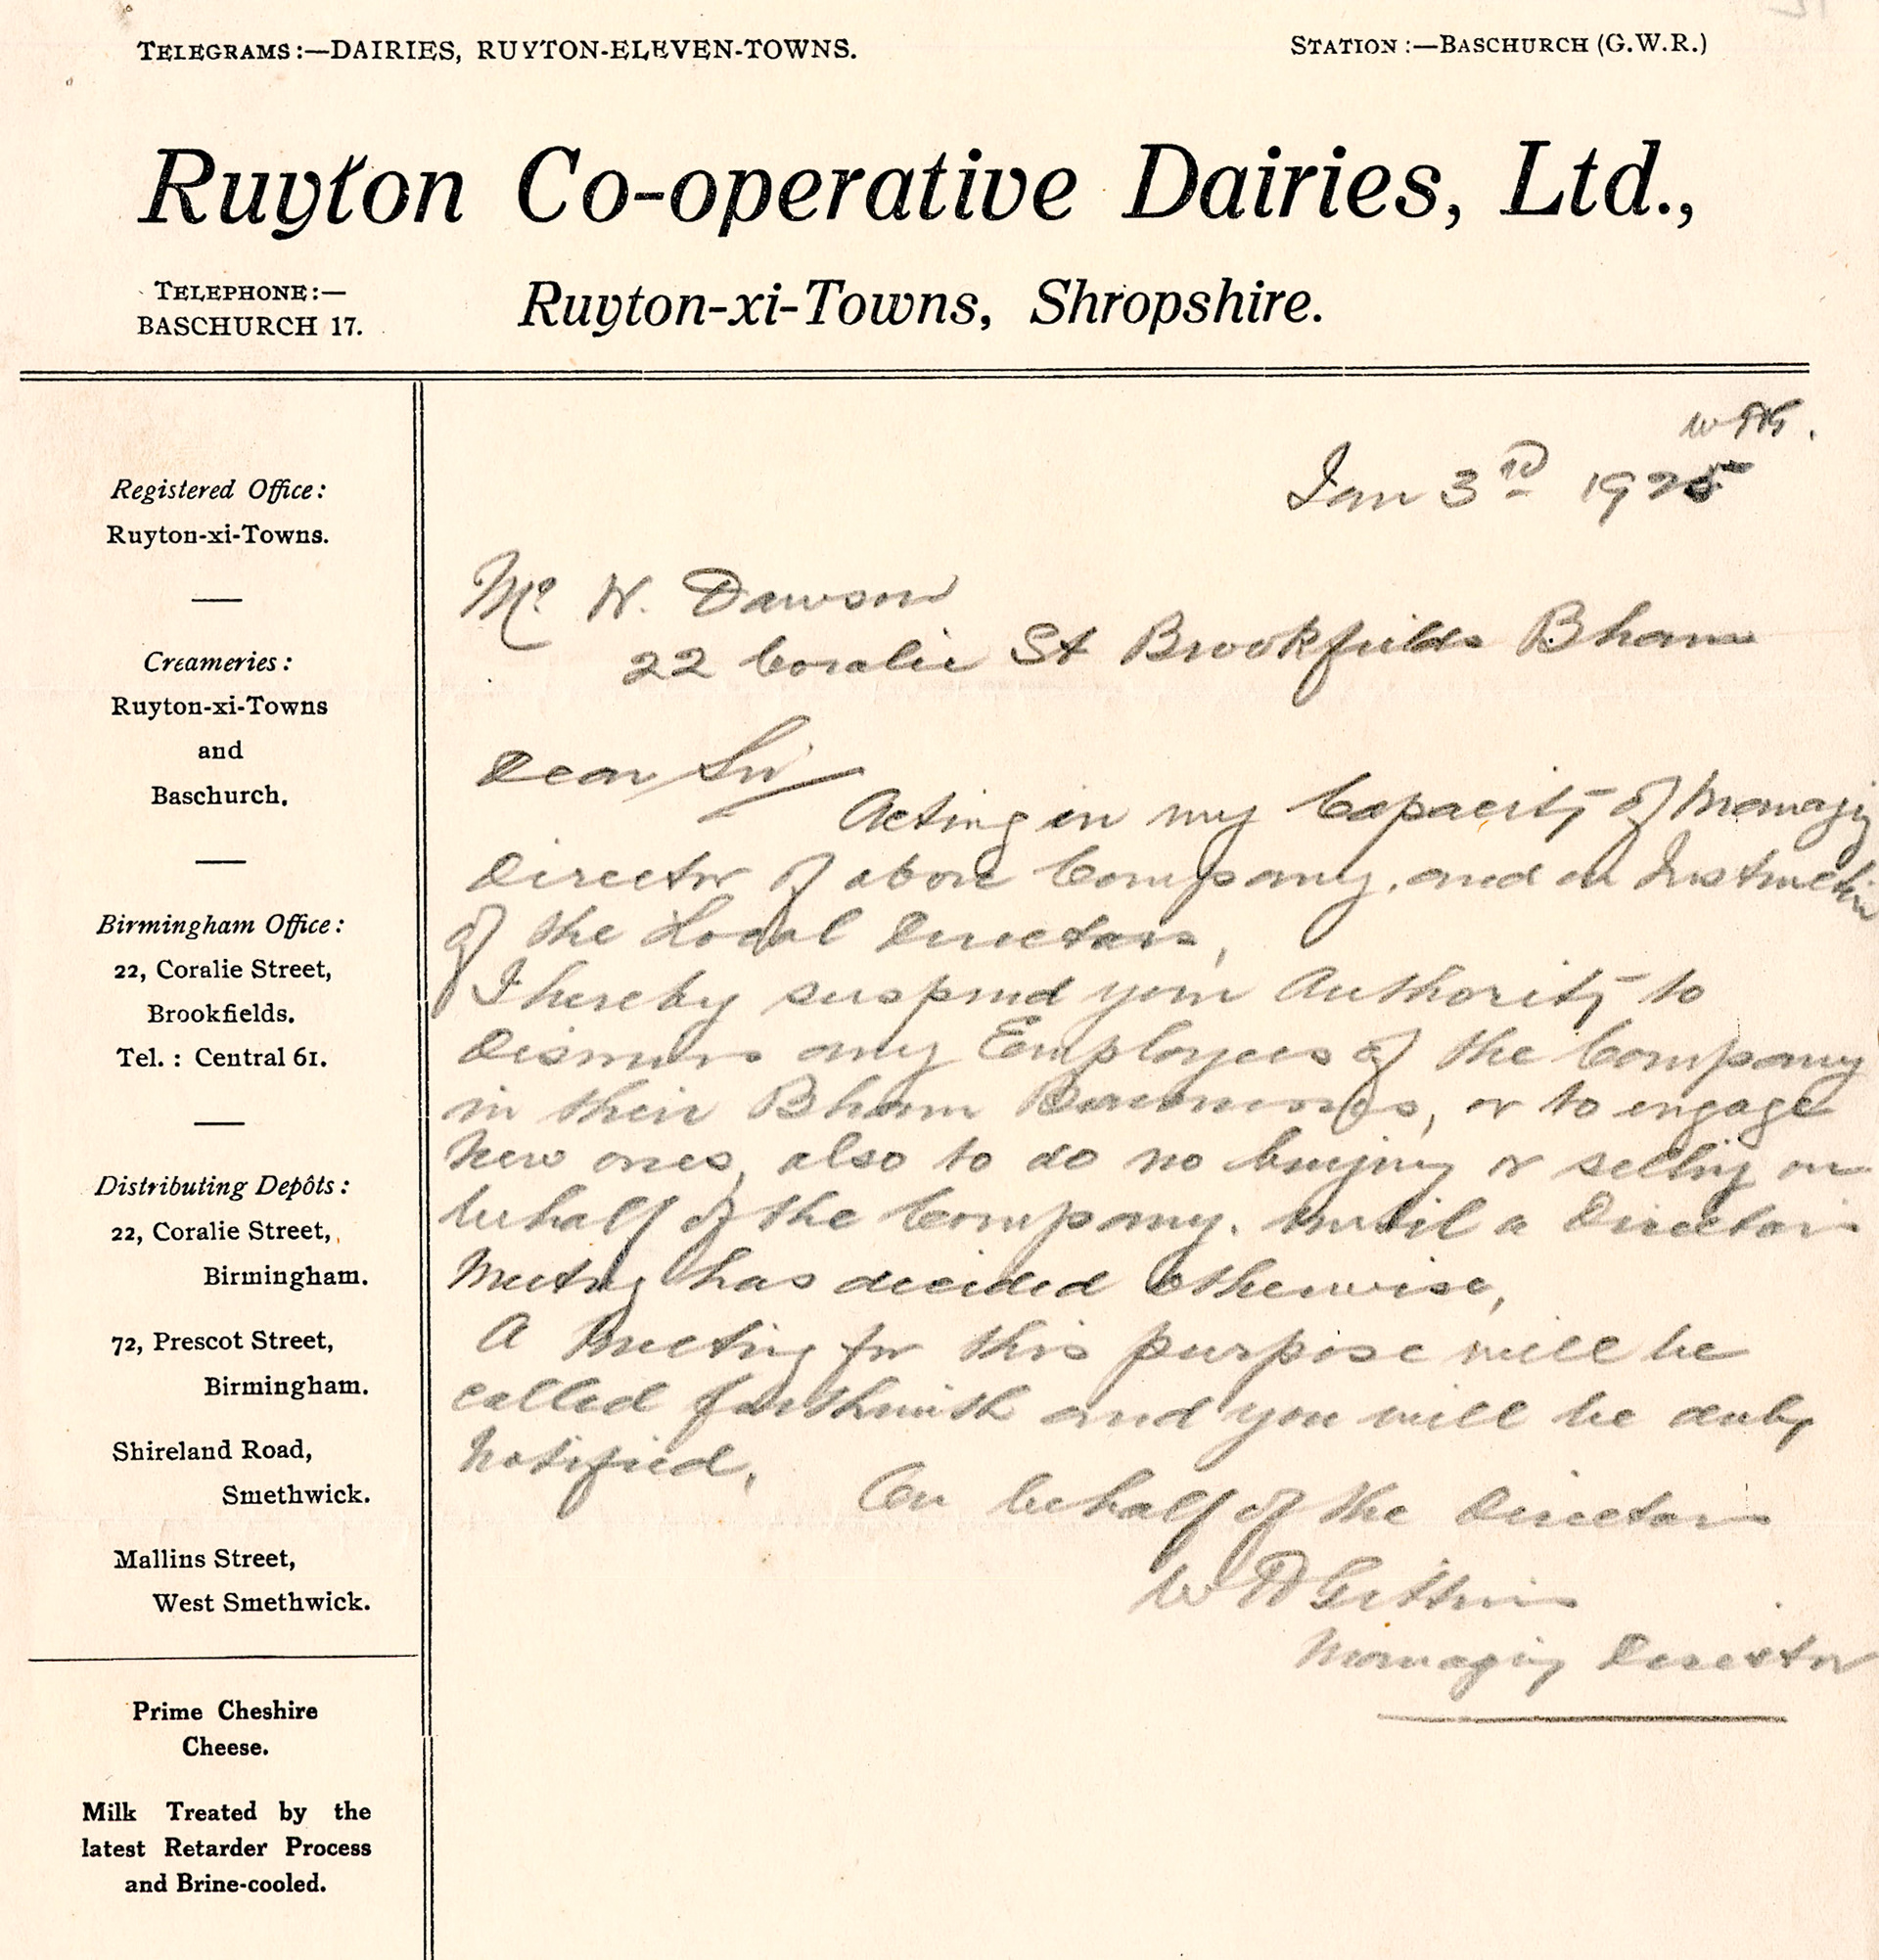 TELEGRAMS:—DAIRIES, RUYTON-ELEVEN-TOWNS.
STATION:—BASCHURCH (G.W.R.)
Ruyton Co-operative Dairies, Ltd.,
TELEPHONE:—
BASCHURCH 17.
Ruyton-xi-Towns, Shropshire.
Registered Office:
Ruyton-xi-Towns.
Creameries:
Ruyton-xi-Towns
and
Baschurch.
Birmingham Office:
22, Coralie Street,
Brookfields.
Tel.: Central 61.
Distributing Depôts:
22, Coralie Street,
Birmingham.
72, Prescot Street,
Birmingham.
Shireland Road,
Smethwick.
Mallins Street,
West Smethwick.
Prime Cheshire
Cheese.
Milk Treated by the
latest Retarder Process
and Brine-cooled.
Jan 3rd 1925
Mr W. Dawson
22 Coralie St Brookfields Bham
Dear Sir/
Acting in my Capacity of Managing
Director of above Company, and on Instruction
of the Local Directors,
I hereby suspend your Authority to
Dismiss any Employees of the Company
in their Bham Businesses, or to engage
New ones, also to do no buying or selling on
behalf of the Company. until a Directors
Meeting has decided otherwise,
A Meeting for this purpose will be
called forthwith and you will be duly
Notified,
On behalf of the Directors
W H Gittins
Managing Director